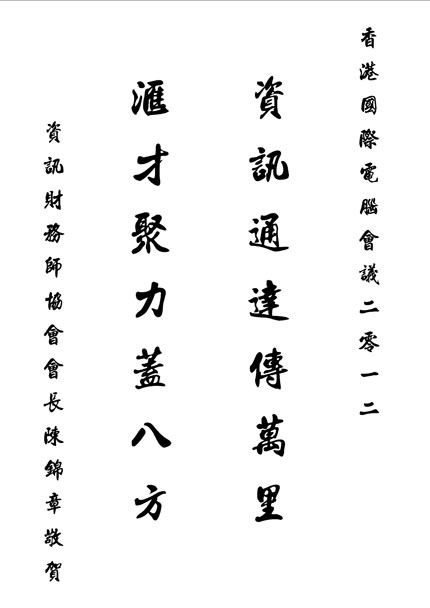 香港國際電腦會議二零一二
資訊通達傳萬里
滙才聚力蓋八方
資訊財務師協會會長陳錦章敬賀